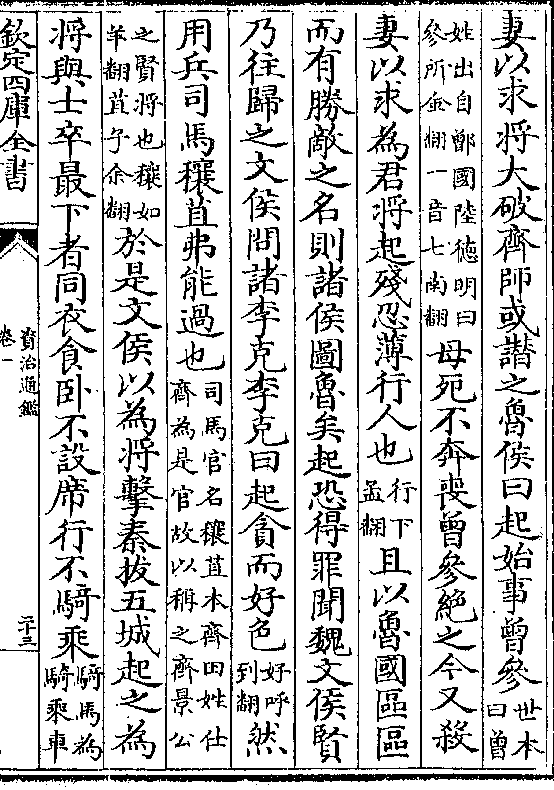 妻以求將大破齊師或譖之魯侯曰起始事曾參世本曰曾
姓出自鄫國陸德明曰參所金翻一音七南翻母死不奔喪曾參絶之今又殺
妻以求為君將起殘忍薄行人也行下孟翻且以魯國區區
而有勝敵之名則諸侯圖魯矣起恐得罪聞魏文侯賢
乃往歸之文侯問諸李克李克曰起貪而好色好呼到翻然
用兵司馬穰苴弗能過也司馬官名穰苴本齊田姓仕齊為是官故以稱之齊景公
之賢將也穰如羊翻苴子余翻於是文侯以為將擊秦拔五城起之為
將與士卒最下者同衣食卧不設席行不騎乘騎馬為騎乘車
欽定四庫全書
資治通鑑
卷一
二十三